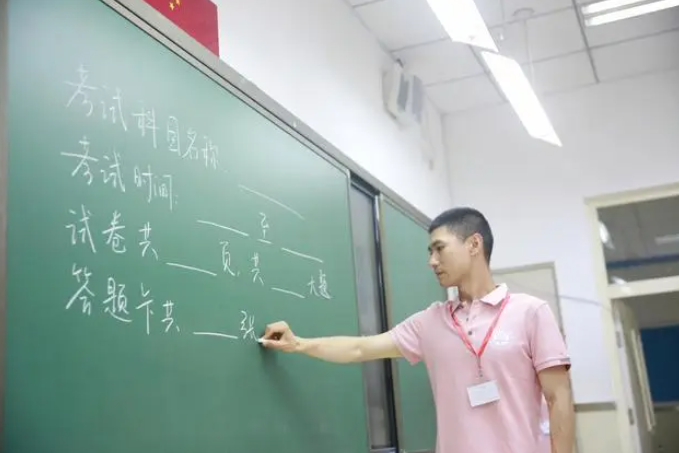 考试科目名称:______
考试时间:____至____
试卷共____页,共____大题
答题卡共____张